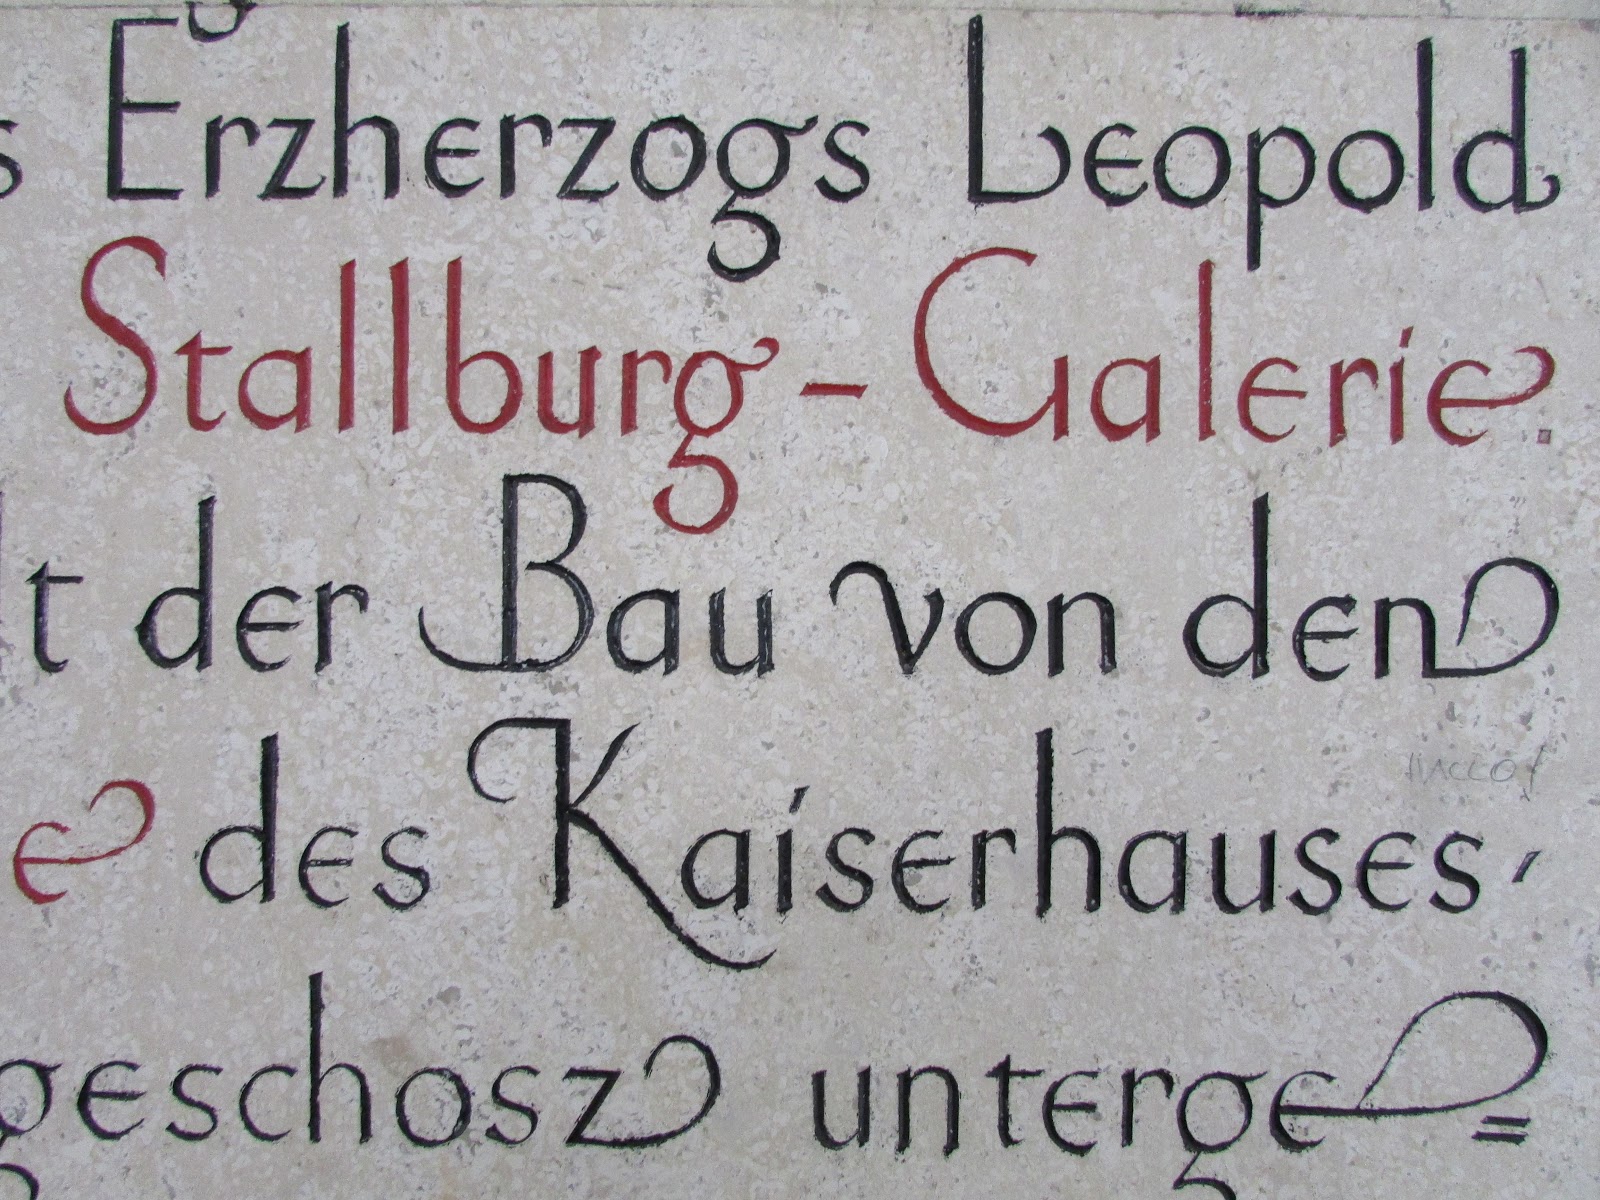 s Erzherzogs Leopold
Stallburg - Galerie.
lt der Bau von den
e des Kaiserhauses,
geschosz unterge=